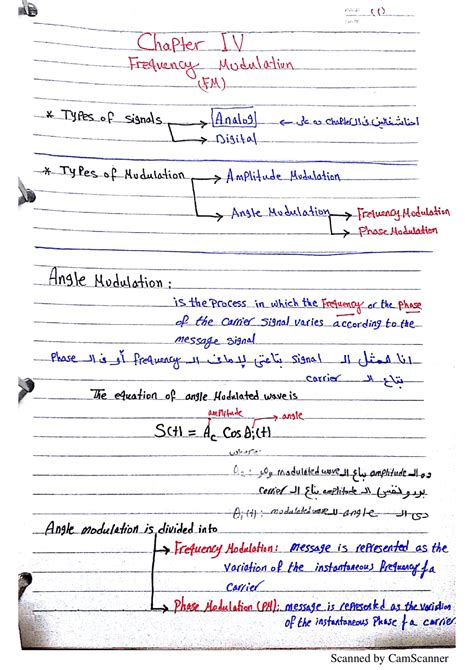 (1)
Chapter IV
Frequency Modulation
(FM)
* Types of signals → Analog ← احنا شغالين في الـ Chapter ده على
→ Digital
* Types of Modulation → Amplitude Modulation
→ Angle Modulation → Frequency Modulation
→ Phase Modulation
Angle Modulation :
is the Process in which the Frequency or the Phase
of the Carrier Signal varies according to the
message signal
انا همثل الـ signal بتاعتي الـ Frequency أو في الـ Phase
بتاع الـ carrier
The equation of angle Modulated wave is
amplitude → angle
S(t) = Ac Cos θi(t)
Ac : ده الـ amplitude بتاع الـ modulated wave وهو
بردو نفس الـ amplitude بتاع الـ carrier
θi(t) : دي الـ angle الـ modulated wave
Angle modulation is divided into
→ Frequency Modulation : message is represented as the
variation of the instantaneous Frequency of a
Carrier
→ Phase Modulation (PM) : message is represented as the variation
of the instantaneous Phase of a carrier
Scanned by CamScanner